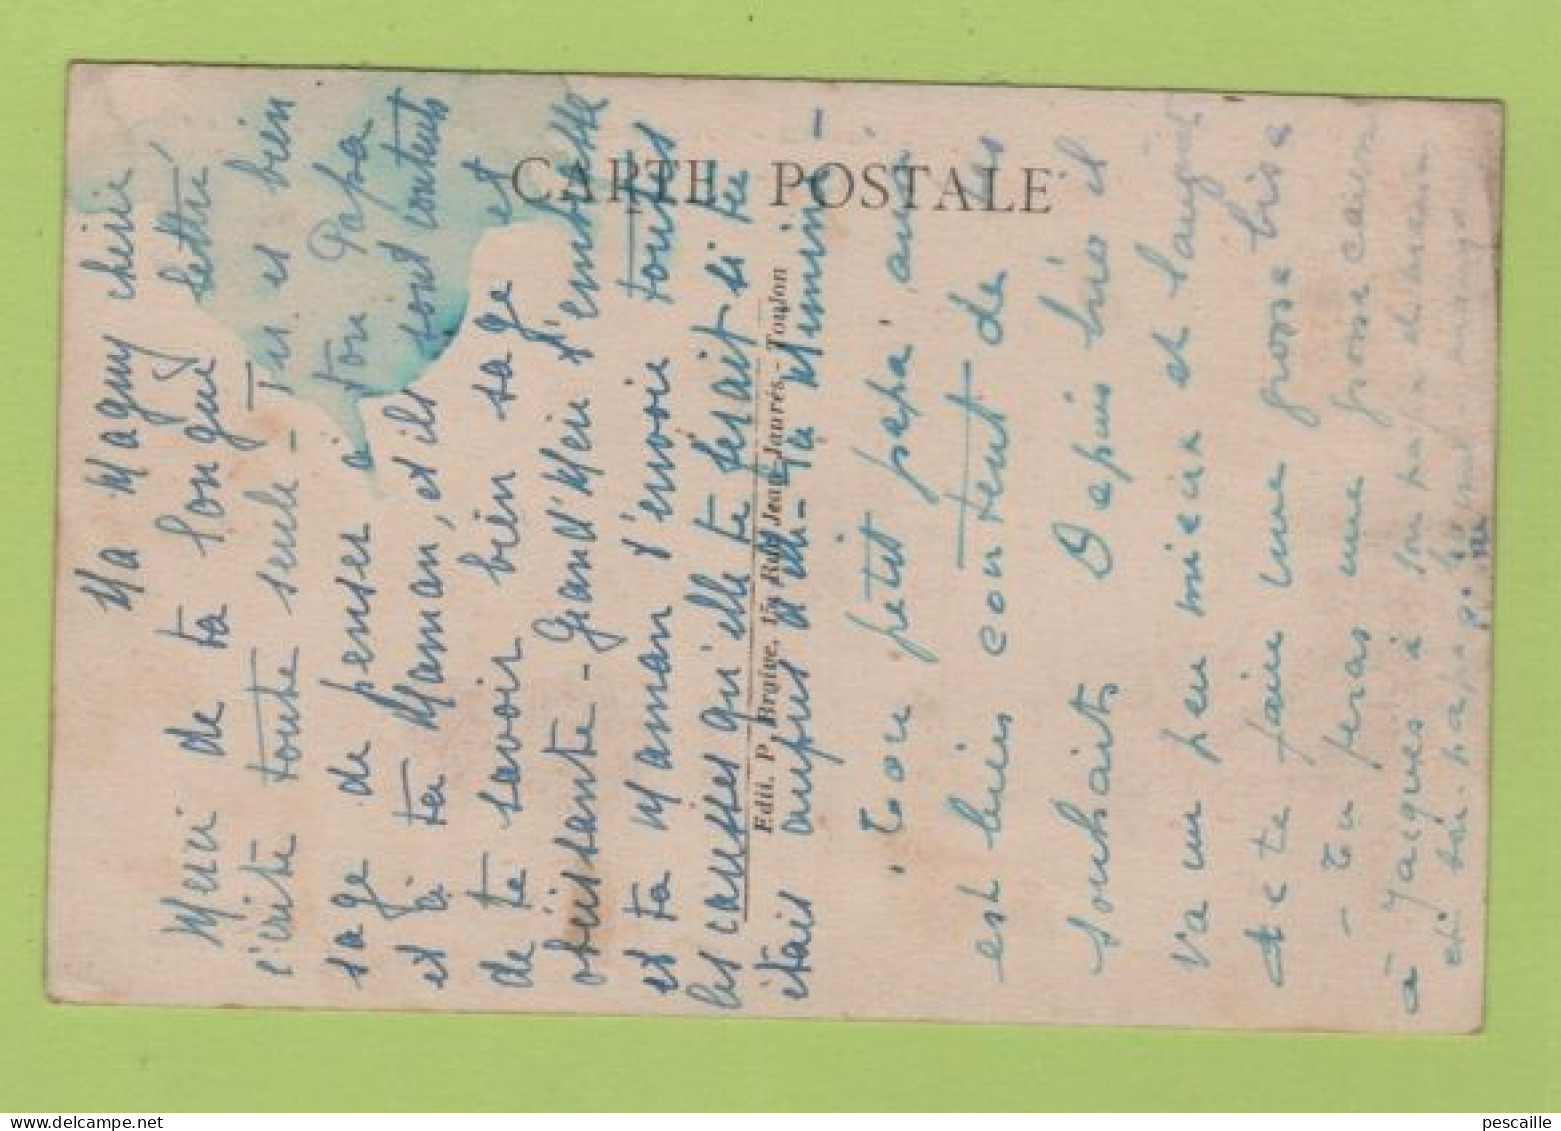 Ma Maguy chérie
Merci de ta longue lettre,
écrite toute seule - Tu es bien
sage de penser à ton Papa
et à ta Maman, et ils sont contents
de te savoir bien sage et
obéissante - Grand'Mère t'embrasse
et ta Maman t'envoie toutes
les caresses qu'elle te ferait si tu
étais auprès d'elle -
Ton petit papa aussi
est bien content de tes
souhaits Depuis hier il
va un peu mieux et
de te faire une grosse bise
- Tu feras une grosse
à Jacques à son papa et maman
CARTE POSTALE
Edit. P. Bruive, 15, Rue Jean-Jaurès, - Toulon
pescaille